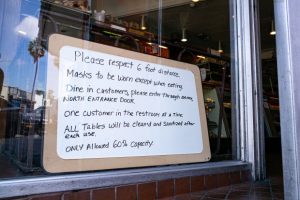 Please respect 6 foot distance.
Masks to be worn except when eating.
Dine in customers, please enter through
NORTH ENTRANCE DOOR.
One customer in the restroom at a time.
ALL Tables will be cleaned and Sanitized after
each use.
ONLY Allowed 60% Capacity.